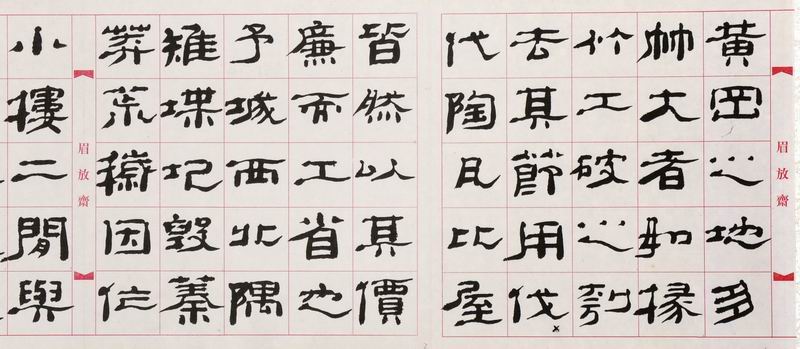 眉放齋
黃岡之地多
竹大者如椽
竹工破之刳
去其節用伐
代陶瓦比屋
皆然以其價
廉而工省也
予城西北隅
雉堞圮毀蓁
莽荒穢因作
眉放齋
小樓二間與